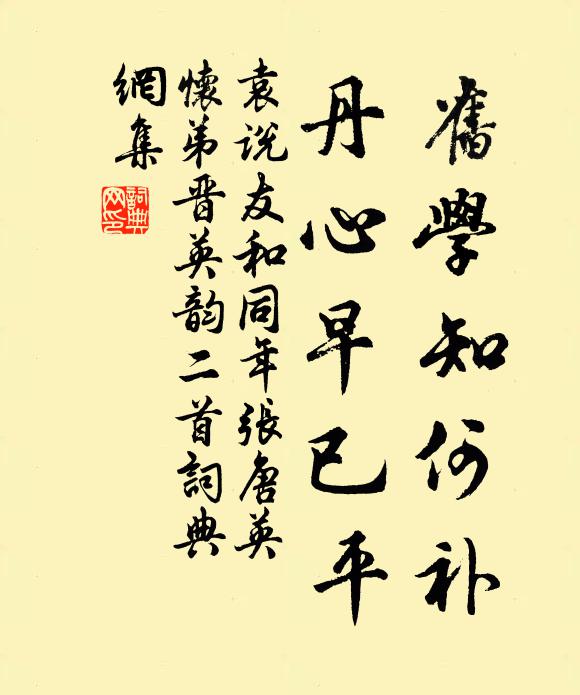 舊學知何补
丹心早已平
袁说友和同年張唐英
懷弟晋英韵二首詞典
網集
詞典网印